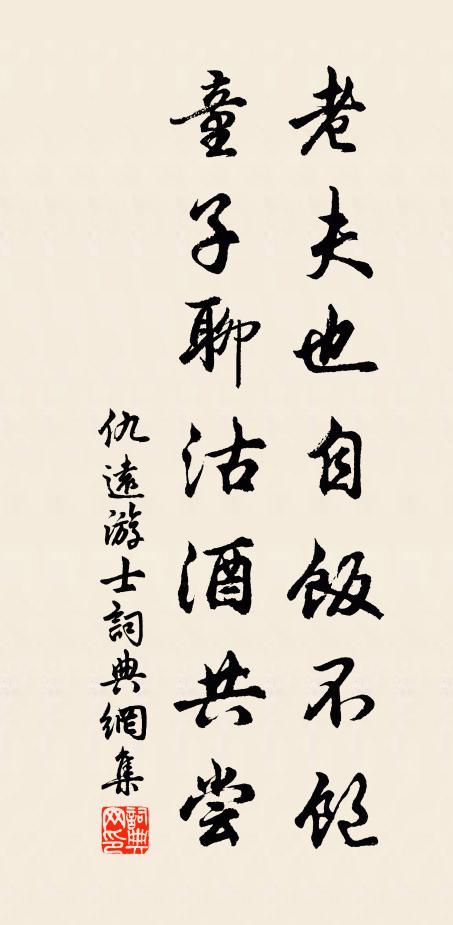 老夫也自饭不饱
童子聊沽酒共尝
仇遠游士詞典網集
詞典网印